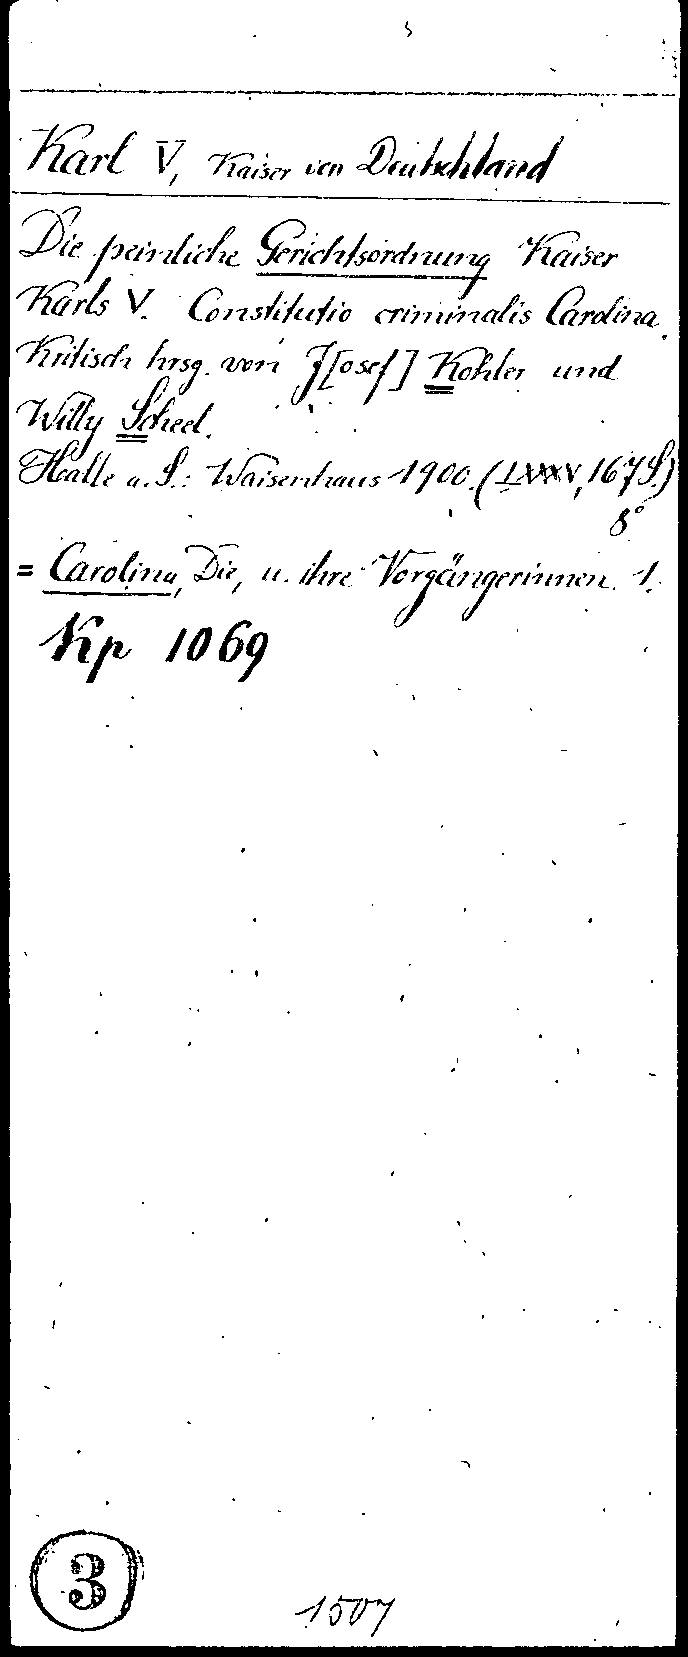 Karl V, Kaiser von Deutschland
Die peinliche Gerichtsordnung Kaiser
Karls V. Constitutio criminalis Carolina.
Kritisch hrsg. von J[osef] Kohler und
Willy Scheel.
Halle a. S.: Waisenhaus 1900. (LXXXV, 167 S.)
8°
= Carolina, Die, u. ihre Vorgängerinnen. 1.
Kp 1069
3
1507